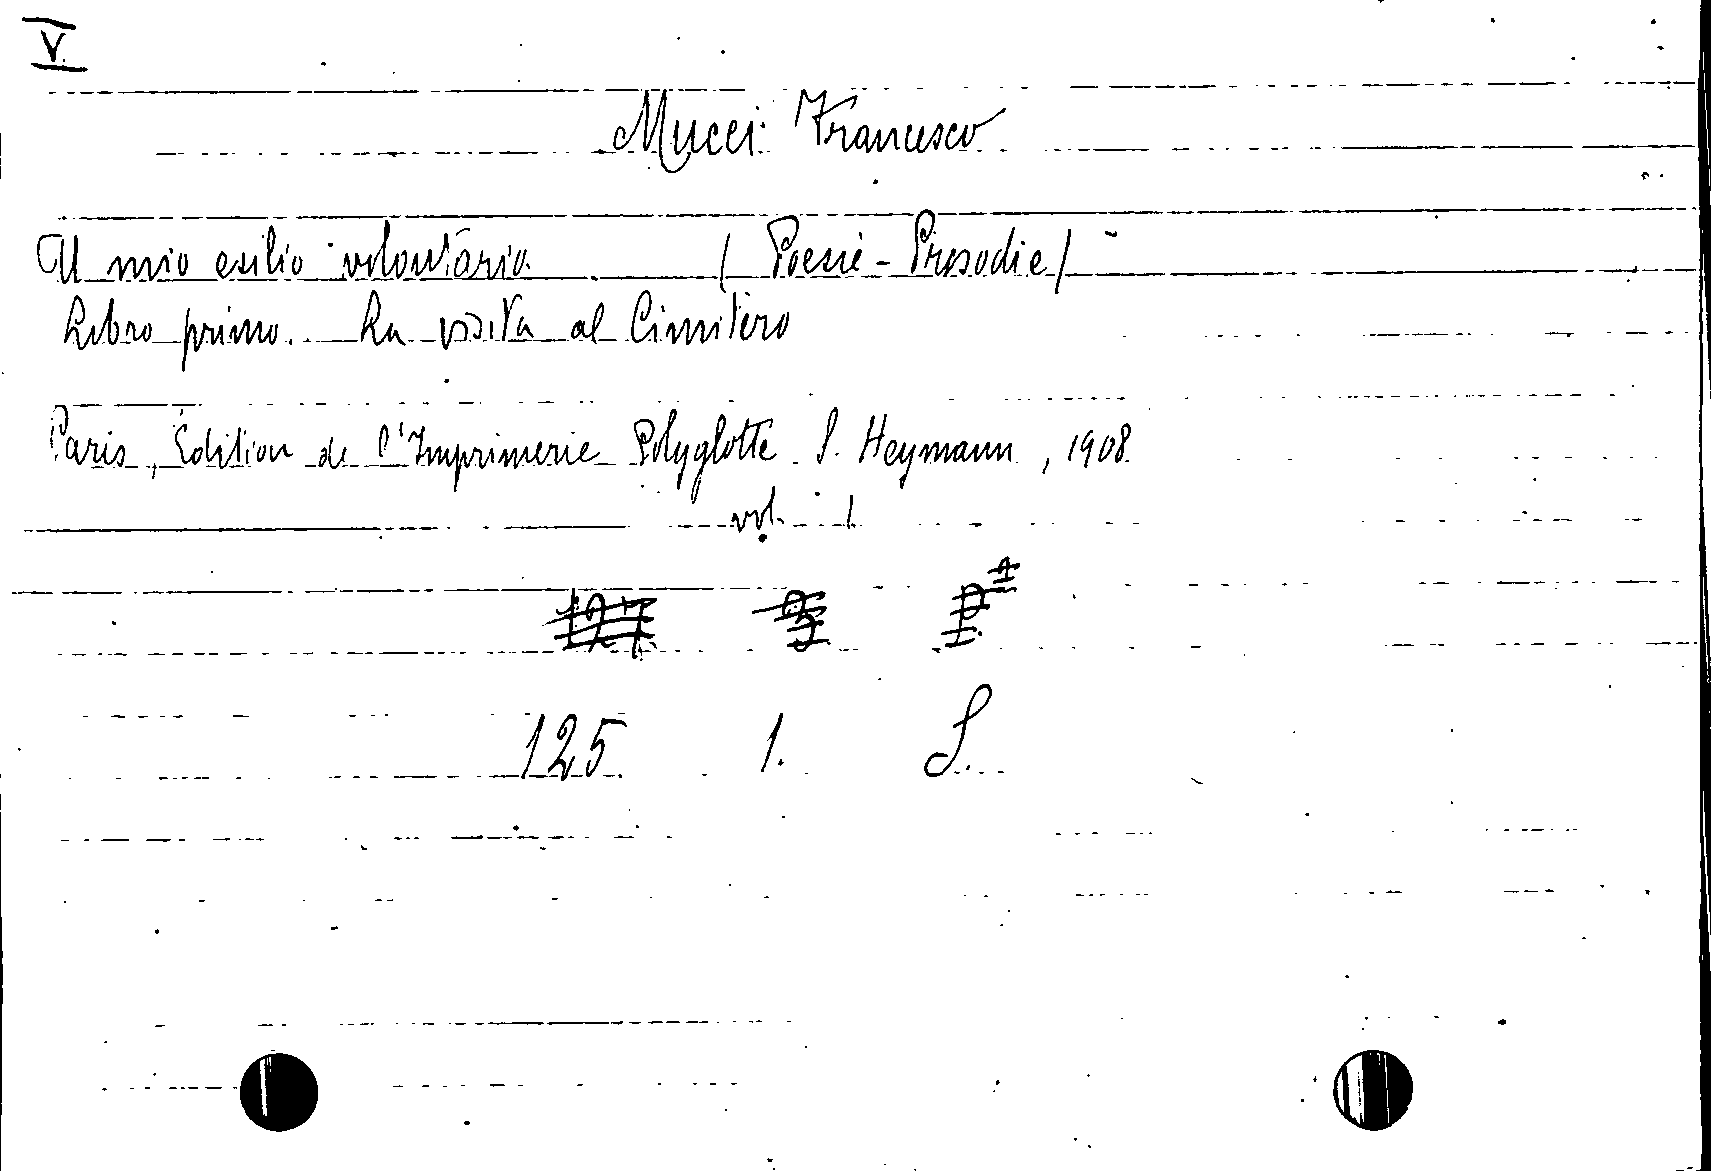 V.
Mucci Francesco
Il mio esilio volontario. (Poesie - Prosodie)
Libro primo. La visita al Cimitero
Paris, Edition de l'Imprimerie Polyglotte S. Heymann, 1908
vol. 1
125. 1. S.